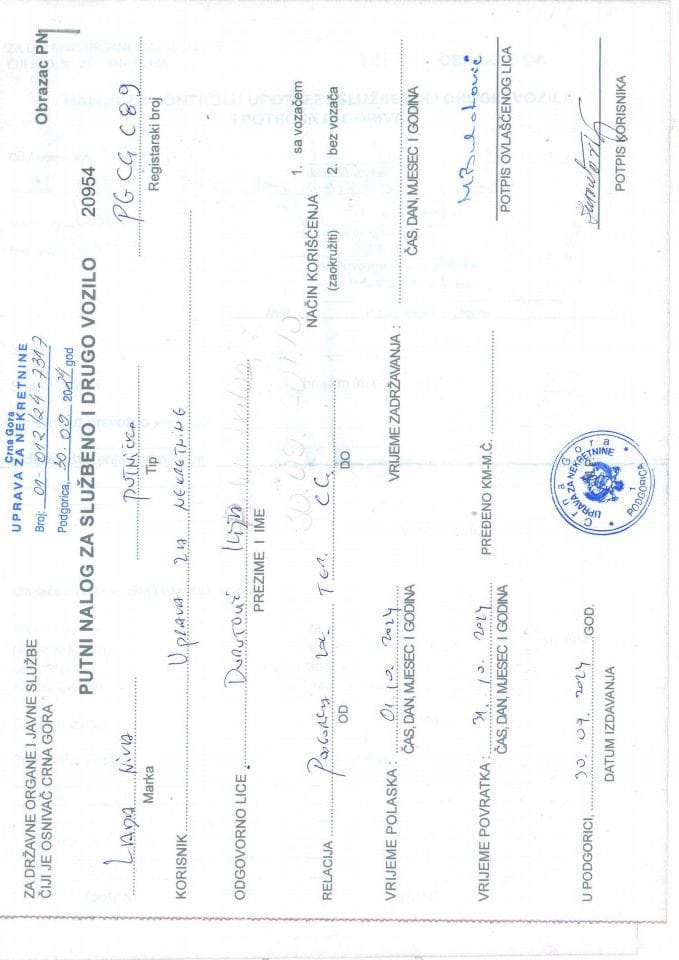 ZA DRŽAVNE ORGANE I JAVNE SLUŽBE
ČIJI JE OSNIVAČ CRNA GORA
Crna Gora
UPRAVA ZA NEKRETNINE
Broj: 01-012/24-7317
Podgorica, 30.09 2024 god.
Obrazac PN
PUTNI NALOG ZA SLUŽBENO I DRUGO VOZILO 20954
LADA NIVA PUTNIČKA PG CG C89
Marka Tip Registarski broj
KORISNIK UPRAVA ZA NEKRETNINE
ODGOVORNO LICE
PREZIME I IME
NAČIN KORIŠĆENJA 1. sa vozačem
(zaokružiti) 2. bez vozača
RELACIJA TER. CG
OD DO
VRIJEME POLASKA : 01.10 2024 VRIJEME ZADRŽAVANJA :
ČAS, DAN, MJESEC I GODINA ČAS, DAN, MJESEC I GODINA
VRIJEME POVRATKA : 31.10.2024 PREĐENO KM-M.Č.
ČAS, DAN, MJESEC I GODINA
POTPIS OVLAŠĆENOG LICA
U PODGORICI, 30.09.2024 GOD.
DATUM IZDAVANJA
M.P.
Crna Gora
UPRAVA ZA NEKRETNINE
1
PODGORICA
POTPIS KORISNIKA